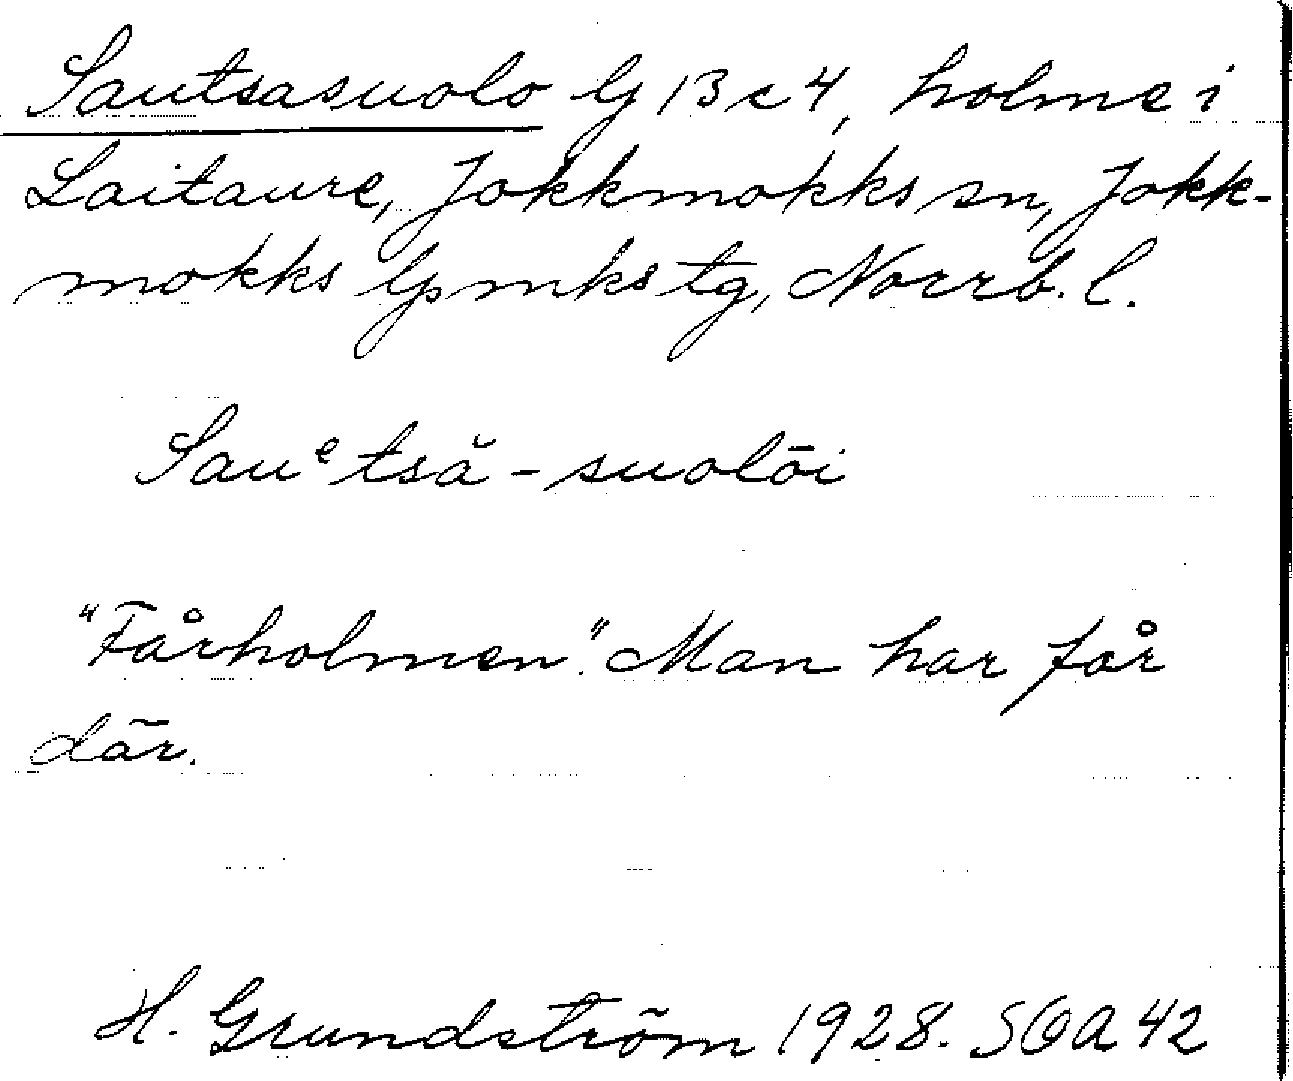 Sautsasuolo G 13 c 4, holme i
Laitaure, Jokkmokks sn, Jokk-
mokks lpmks tg, Norrb. l.
Sauᵉtsă-suolōi
"Fårholmen." Man har får
där.
H. Grundström 1928. SOA 42